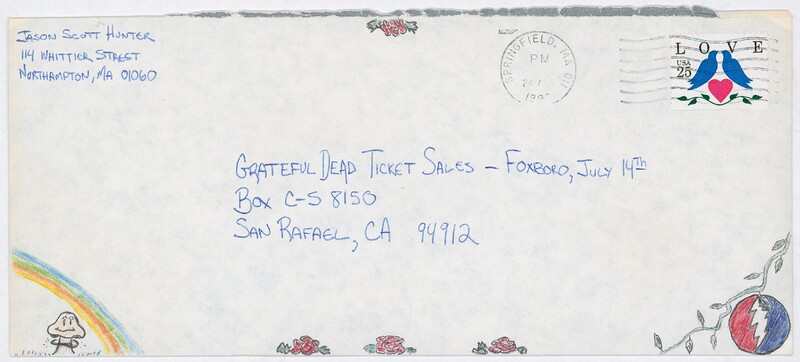 JASON SCOTT HUNTER
114 WHITTIER STREET
NORTHAMPTON, MA 01060
SPRINGFIELD, MA 011
PM
LOVE
USA
25
GRATEFUL DEAD TICKET SALES – FOXBORO, JULY 14TH
BOX C-S 8150
SAN RAFAEL, CA 94912